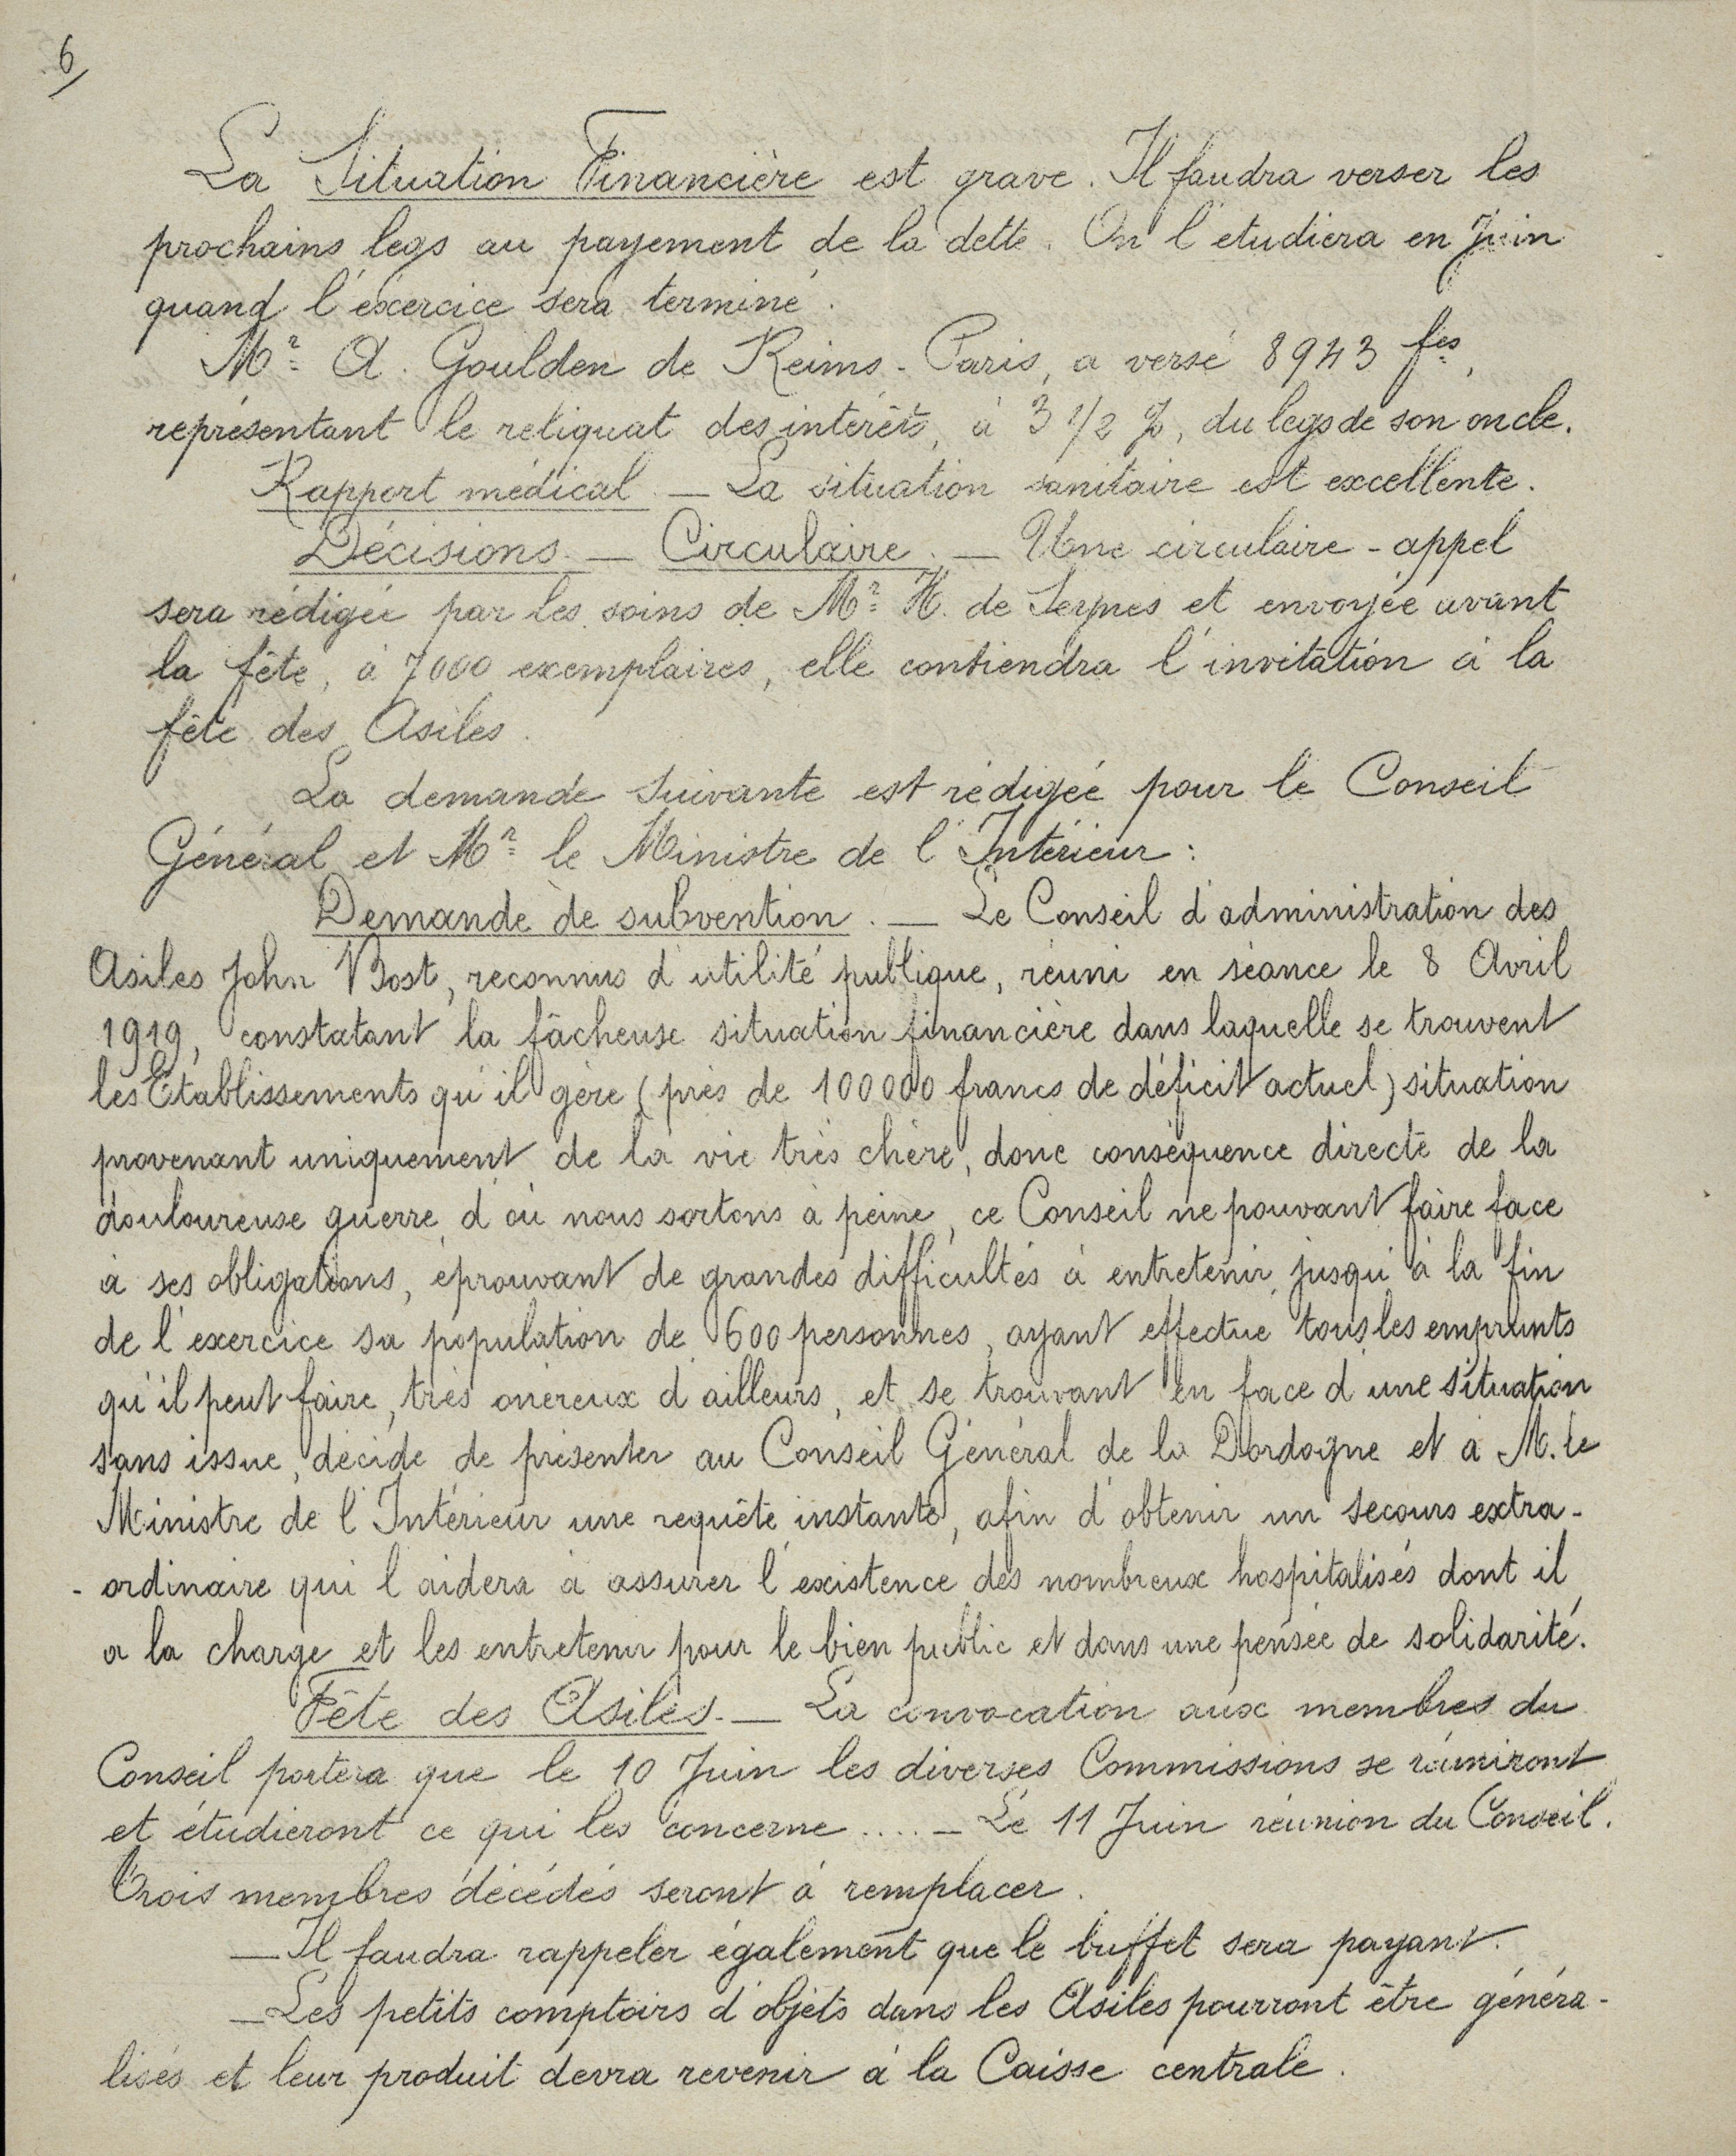 6
La Situation Financière est grave. Il faudra verser les
prochains legs au payement de la dette. On l'etudiera en Juin
quand l'éxercice sera terminé.
Mr. A. Goulden de Reims-Paris, a versé 8943 frs,
représentant le reliquat des intérêts, à 3 1/2 %, du legs de son oncle.
Rapport médical. — La situation sanitaire est excellente.
Décisions. — Circulaire. — Une circulaire-appel
sera rédigée par les soins de Mr. H. de Seynes et envoyée avant
la fête, à 7000 exemplaires, elle contiendra l'invitation à la
fête des Asiles.
La demande suivante est rédigée pour le Conseil
Général et Mr. le Ministre de l'Intérieur :
Demande de subvention. — Le Conseil d'administration des
Asiles John Bost, reconnus d'utilité publique, réuni en séance le 8 Avril
1919, constatant la fâcheuse situation financière dans laquelle se trouvent
les Etablissements qu'il gère (près de 100000 francs de déficit actuel) situation
provenant uniquement de la vie très chère, donc conséquence directe de la
douloureuse guerre d'où nous sortons à peine, ce Conseil ne pouvant faire face
à ses obligations, éprouvant de grandes difficultés à entretenir jusqu'à la fin
de l'exercice sa population de 600 personnes, ayant effectué tous les emprunts
qu'il peut faire, très onéreux d'ailleurs, et se trouvant en face d'une situation
sans issue, décide de présenter au Conseil Général de la Dordogne et à M. le
Ministre de l'Intérieur une requête instante, afin d'obtenir un secours extra-
-ordinaire qui l'aidera à assurer l'existence des nombreux hospitalisés dont il
a la charge et les entretenir pour le bien public et dans une pensée de solidarité.
Fête des Asiles. — La convocation aux membres du
Conseil portera que le 10 Juin les diverses Commissions se réuniront
et étudieront ce qui les concerne .... — Le 11 Juin réunion du Conseil.
Trois membres décédés seront à remplacer.
— Il faudra rappeler également que le buffet sera payant.
— Les petits comptoirs d'objets dans les Asiles pourront être généra-
lisés et leur produit devra revenir à la Caisse centrale.